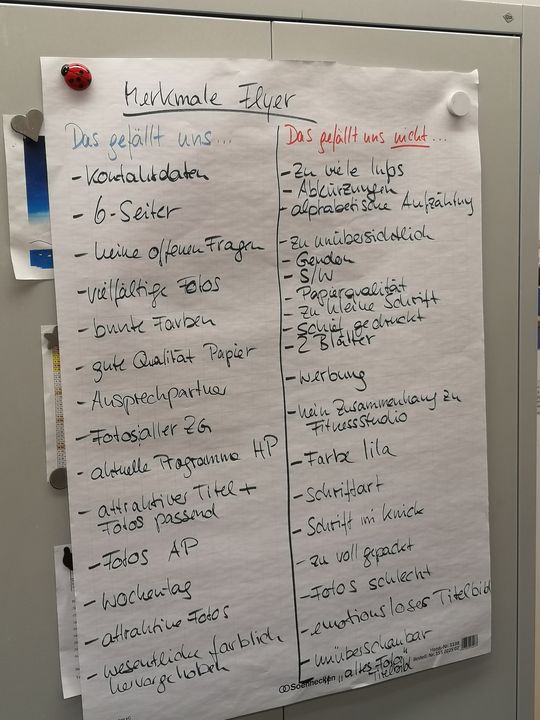 Merkmale Flyer
Das gefällt uns...
- Kontaktdaten
- 6-Seiter
- keine offenen Fragen
- vielfältige Fotos
- bunte Farben
- gute Qualität Papier
- Ansprechpartner
- Fotos aller ZG
- aktuelle Programme HP
- attraktiver Titel +
Fotos passend
- Fotos AP
- Wochentag
- attraktive Fotos
- wesentliche farblich
hervorgehoben
Das gefällt uns nicht...
- Zu viele Infos
- Abkürzungen
- alphabetische Aufzählung
- zu unübersichtlich
- Gendern
- S/W
- Papierqualität
- zu kleine Schrift
- schief gedruckt
- 2 Blätter
- Werbung
- kein Zusammenhang zu
Fitnessstudio
- Farbe lila
- Schriftart
- Schrift im Knick
- zu voll gepackt
- Fotos schlecht
- emotionsloses Titelbild
- unüberschaubar
- "altes Foto"
Titelbild
Soennecken